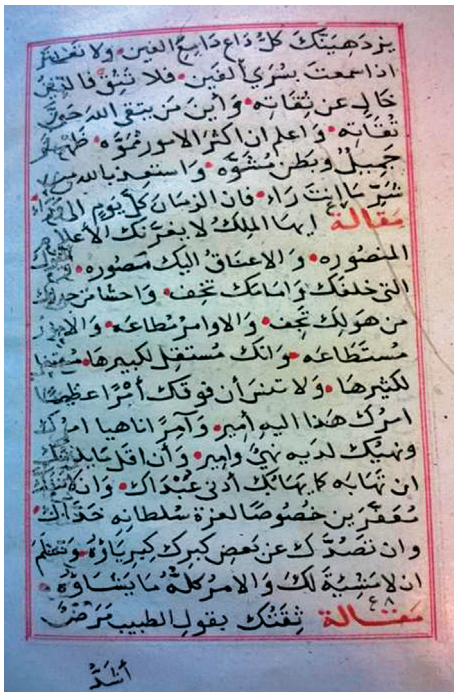 يزدهينك كل داع دامع العين ولا
اذا سمعت بسري القين فلا تثق فالثقة
خال عن ثقاته وأين من يتقي الله حق
تقاته واعلم ان اكثر الامور مموه ظهر
جميل وبطن مشوه واستعذ بالله من
شر ما انت راء فان الزمان كل يوم الى وراء
مقالة ايها الملك لا يغرنك الاعلام
المنصوره والاعناق اليك مصوره
التي خلفك واسامك تخف واحشا من حولك
من هولك تجف والاوامر مطاعه والامور
مستطاعه وانك مستقل لكبيرها
لكثيرها ولا تنس أن فوقك أمرا عظيما
امرك هذا اليه أمير وآمرا ناهيا امرك
ونهيك لديه نهي وامير وأن اقل ما يلزمك
ان تهابه كما يهابك أدنى عبداك وان
تعفر ين خضوعا لعزة سلطانه خداك
وان تصدك عن بعض كبرك كبرياؤه وتعلم
ان لا مشية لك والامر كله ما يشاؤه
مقالة ٤٨ ثقتك بقول الطبيب مرض
أشد